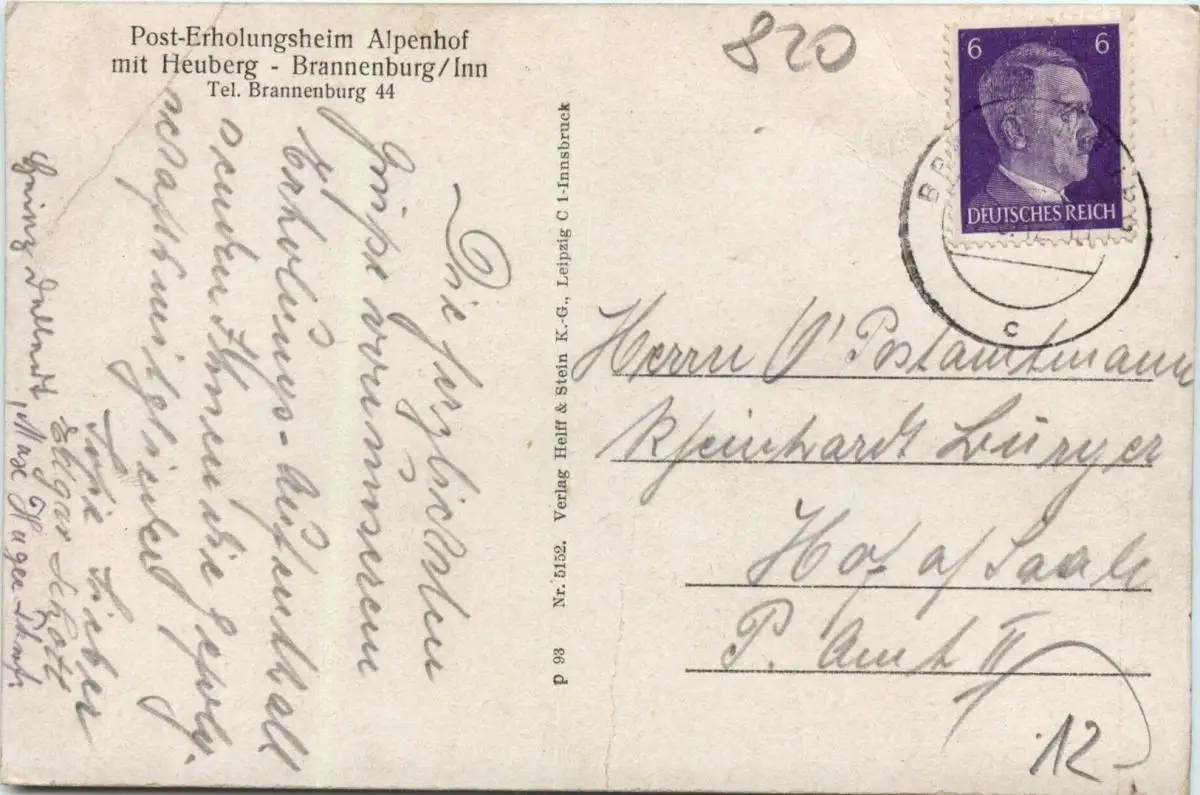 Post-Erholungsheim Alpenhof
mit Heuberg - Brannenburg/Inn
Tel. Brannenburg 44
820
6 6
DEUTSCHES REICH
C
Die herzlichsten
Grüße von unserem
Erholungs-Aufenthalt
senden Ihnen die Gefolg-
schaftsmitglieder
Edgar Schott
Max
p 93 Nr. 5152. Verlag Helff & Stein K.-G., Leipzig C 1-Innsbruck
Herrn O' Postamtmann
Rheinhardt Burger
Hof a/ Saale
P. Amt II
12